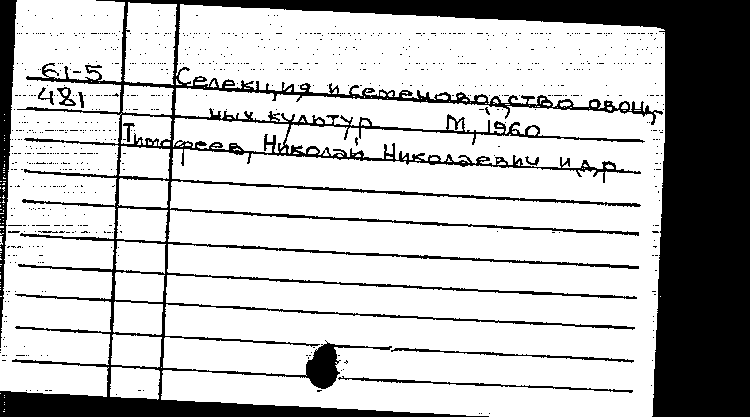 61-5 Селекция и семеноводство овощ-
481 ных культур М, 1960
Тимофеев, Николай Николаевич и др.